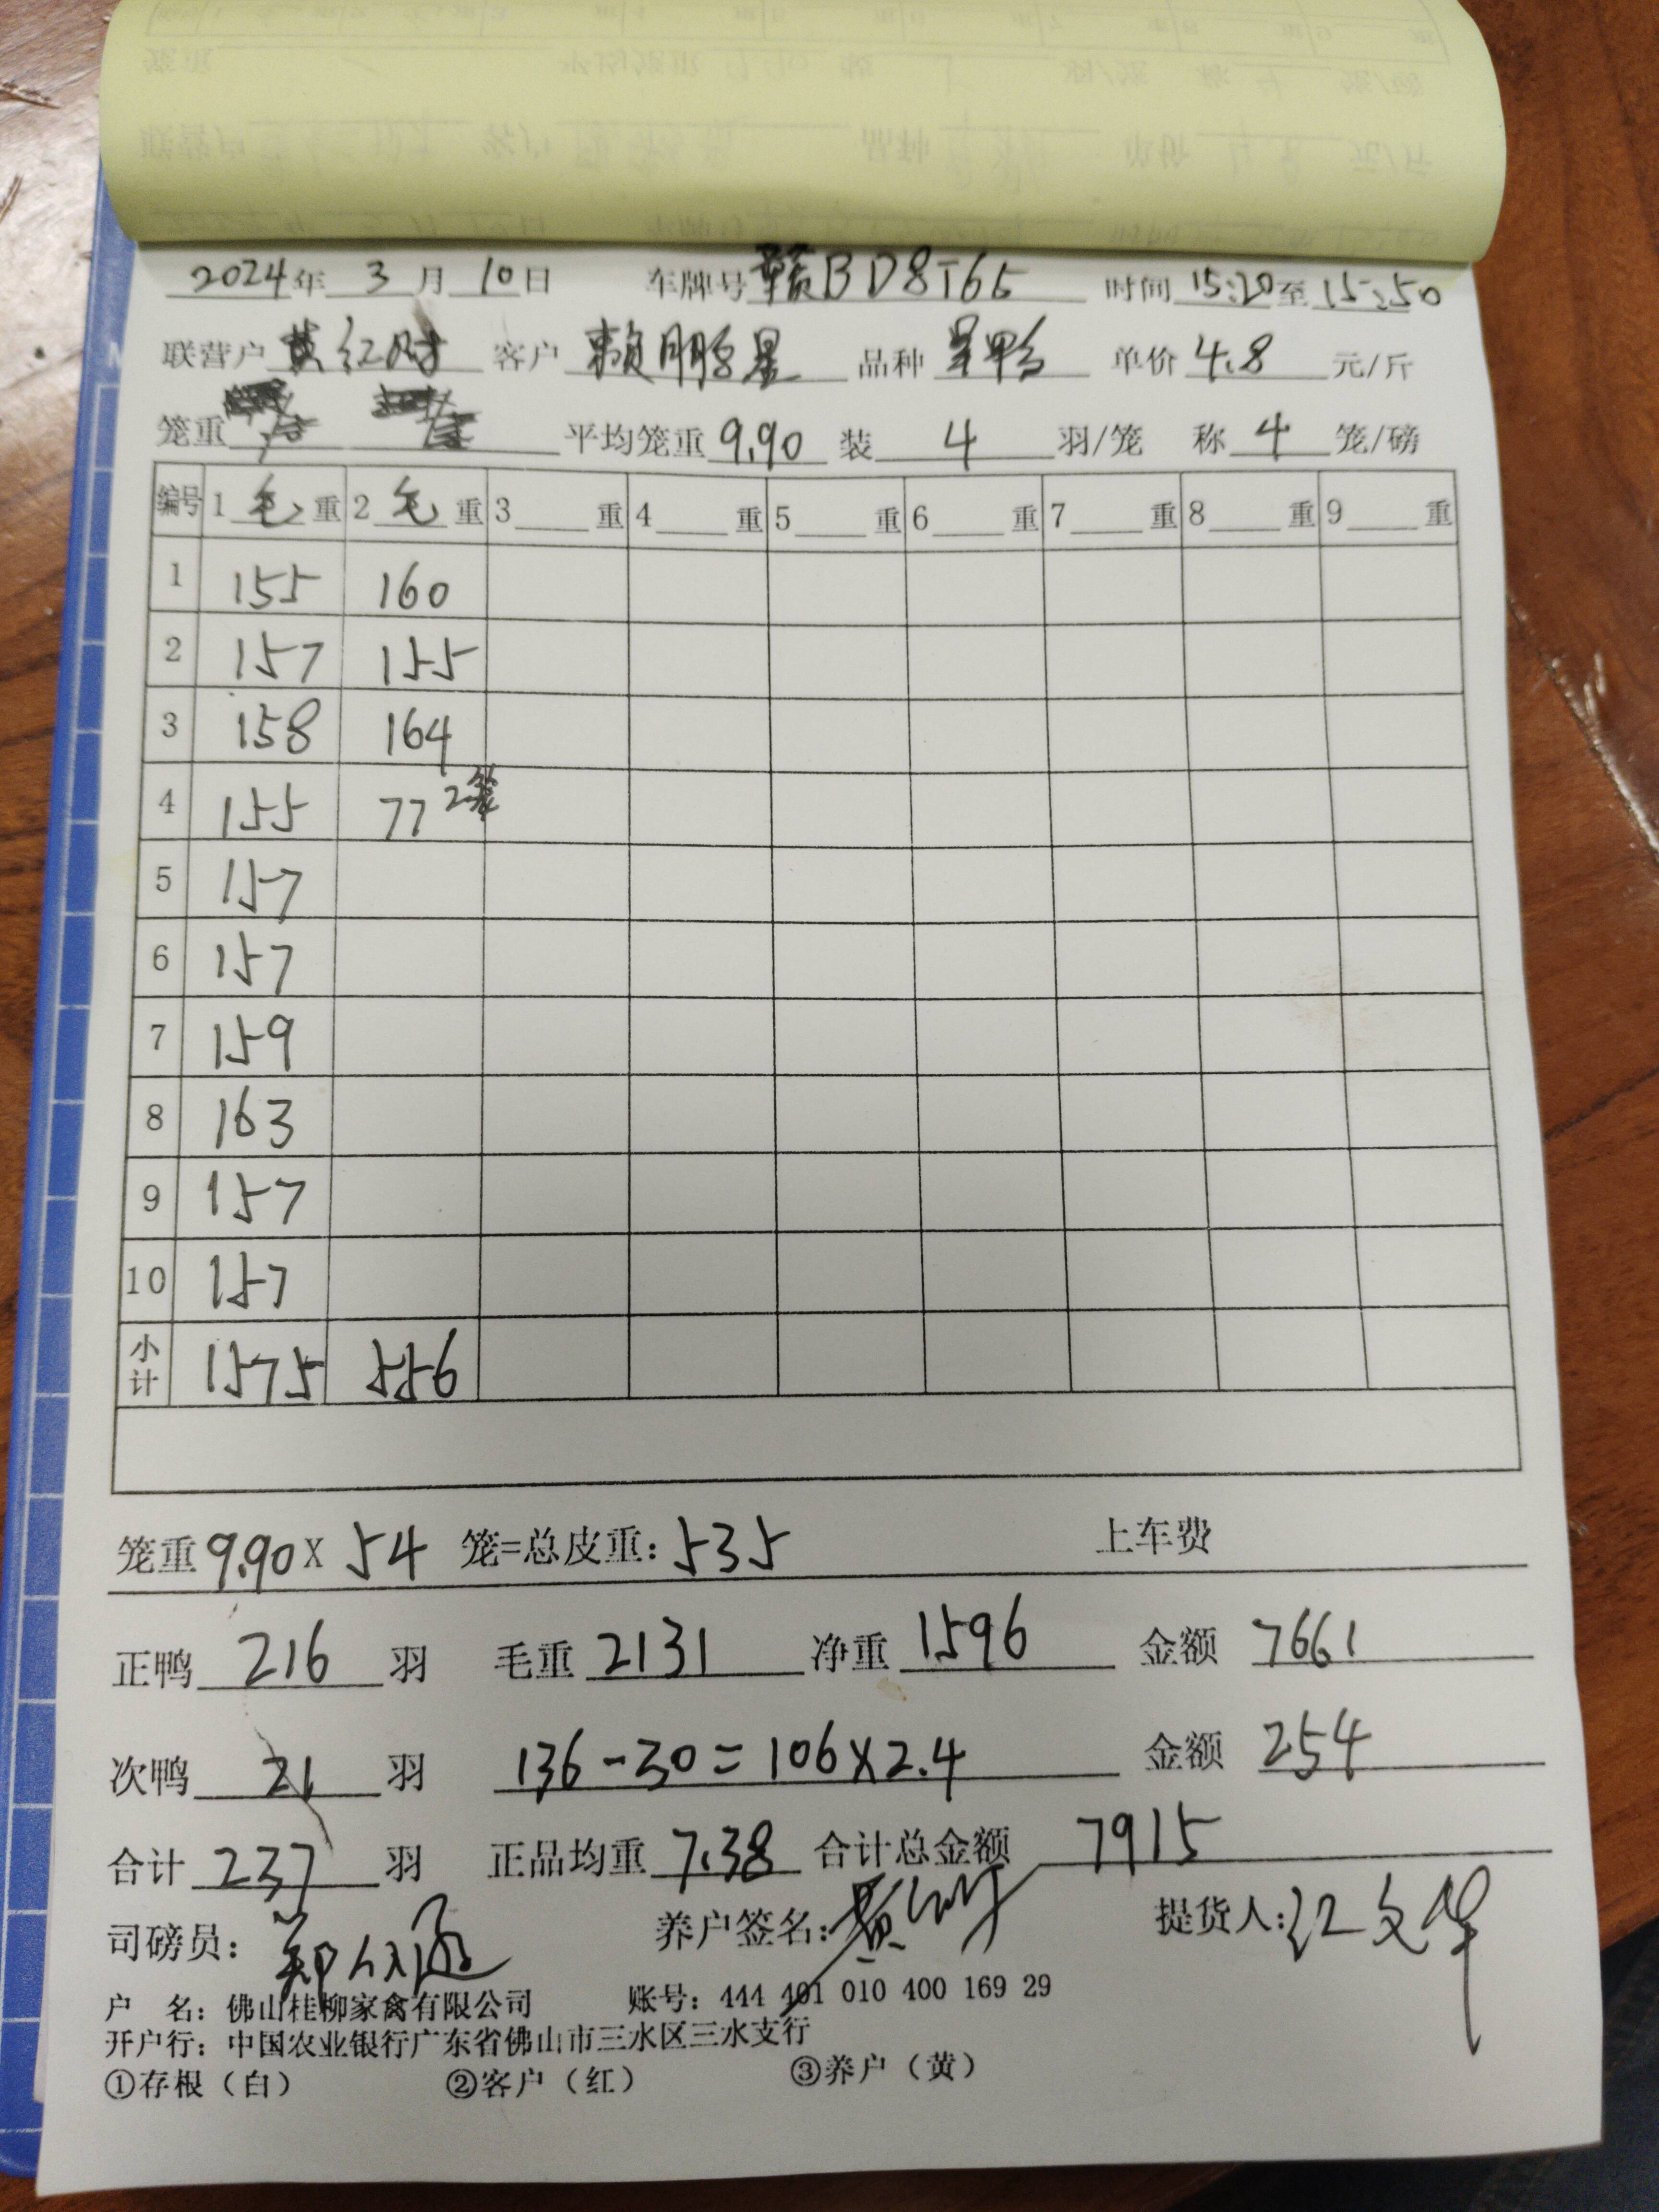 2024年 3 月 10日 车牌号 赣BD8T65 时间 15:20 至 15:50
联营户 黄红财 客户 赖鹏星 品种 呈鸭 单价 4.8 元/斤
笼重 平均笼重 9.90 装 4 羽/笼 称 4 笼/磅
编号 1 毛 重 2 毛 重 3 重 4 重 5 重 6 重 7 重 8 重 9 重
1 155 160
2 157 155
3 158 164
4 155 77 2笼
5 157
6 157
7 159
8 163
9 157
10 157
小计 1575 556
笼重 9.90 X 54 笼=总皮重: 535 上车费
正鸭 216 羽 毛重 2131 净重 1596 金额 7661
次鸭 21 羽 136-30=106X2.4 金额 254
合计 237 羽 正品均重 7.38 合计总金额 7915
司磅员: 养户签名: 提货人: 江文华
户 名: 佛山桂柳家禽有限公司 账号: 444 401 010 400 169 29
开户行: 中国农业银行广东省佛山市三水区三水支行
①存根（白） ②客户（红） ③养户（黄）